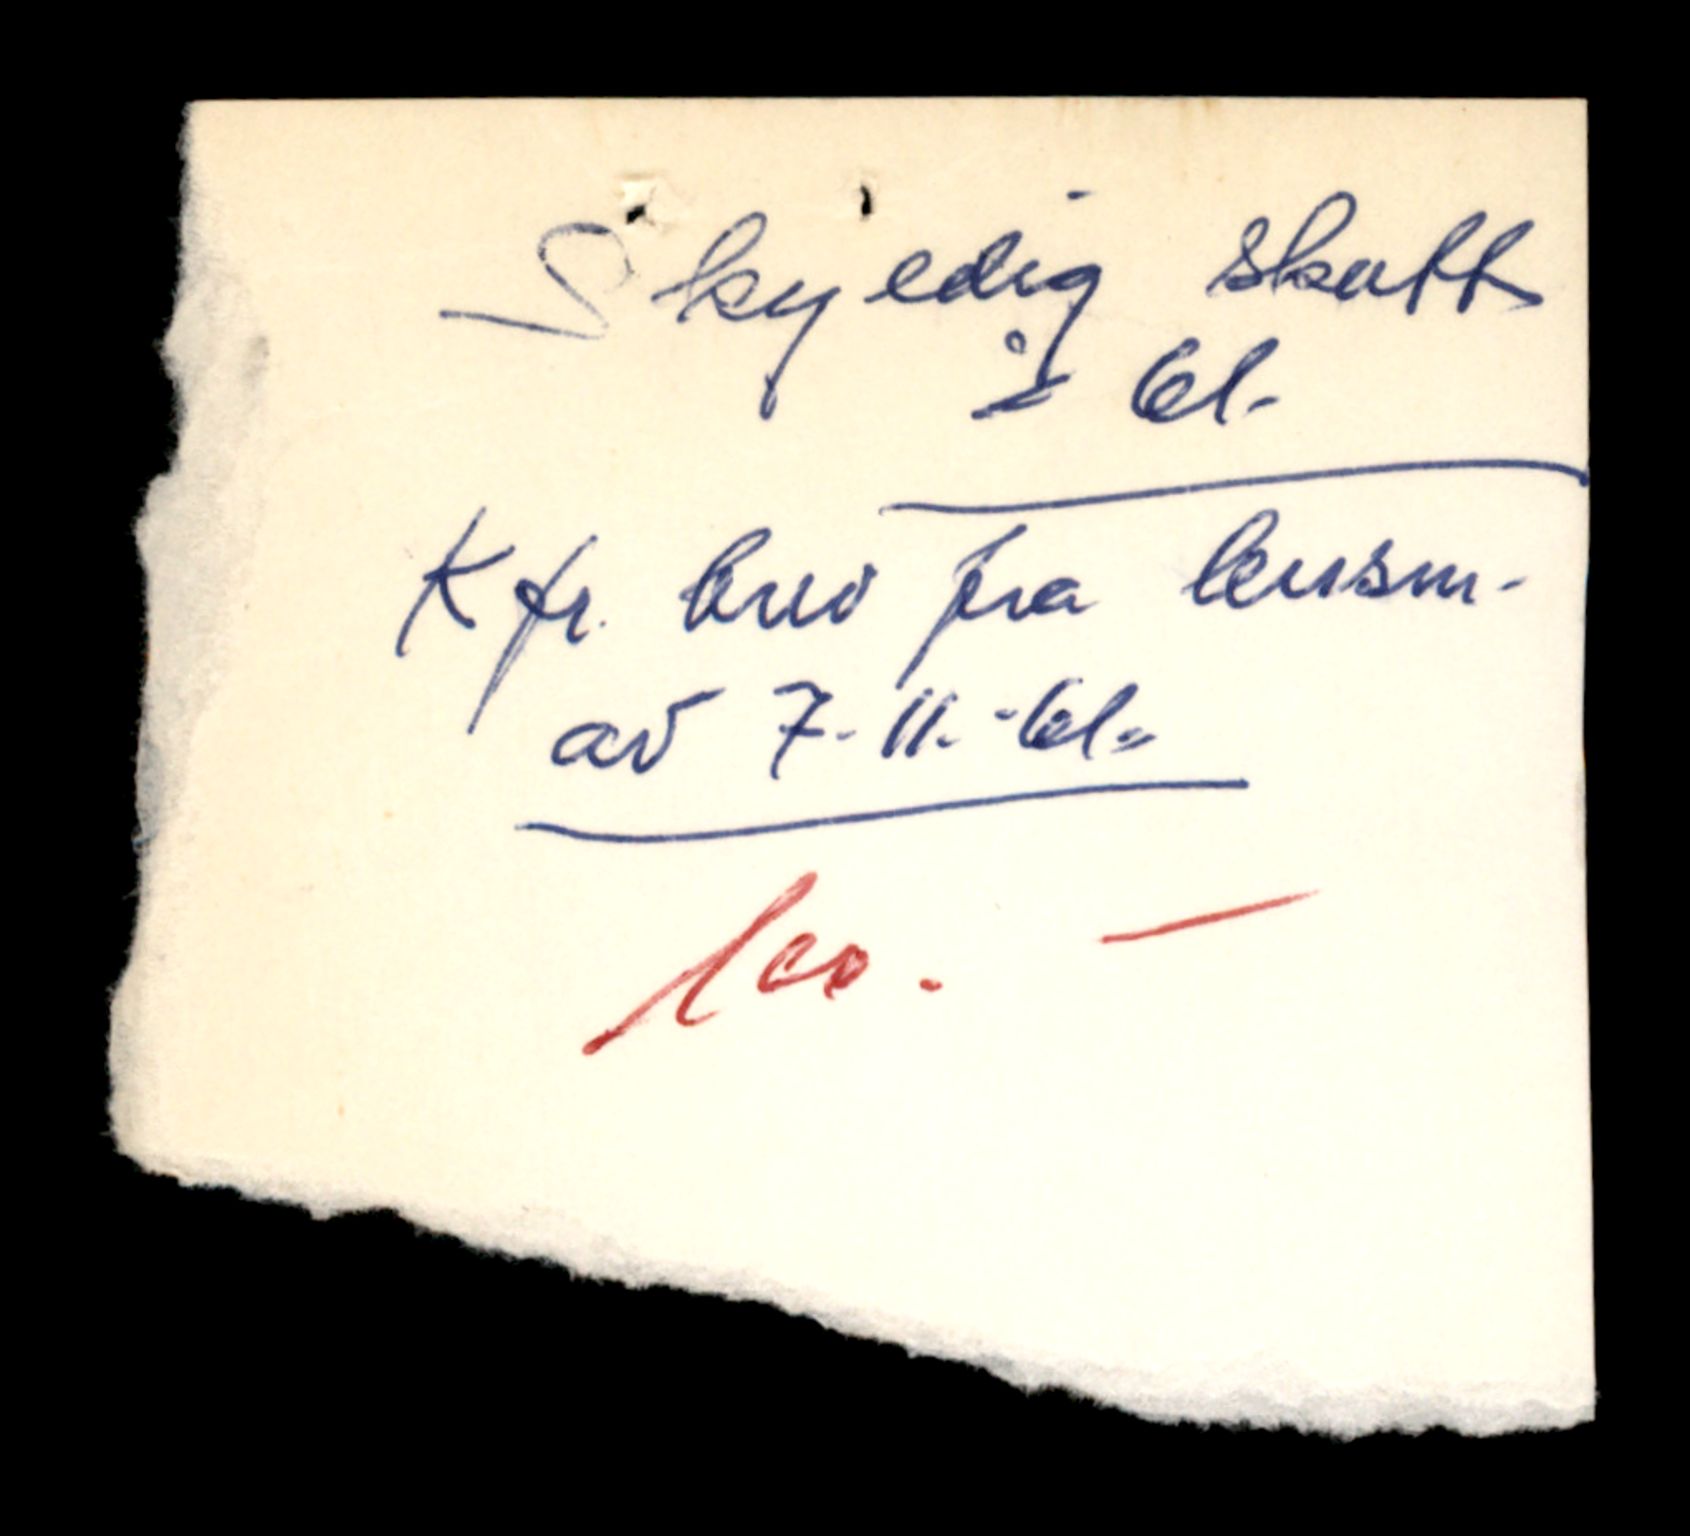 Skyedig skatt
i 61.
Kfr. brev fra lensm.
av 7.11.-61.
100. —